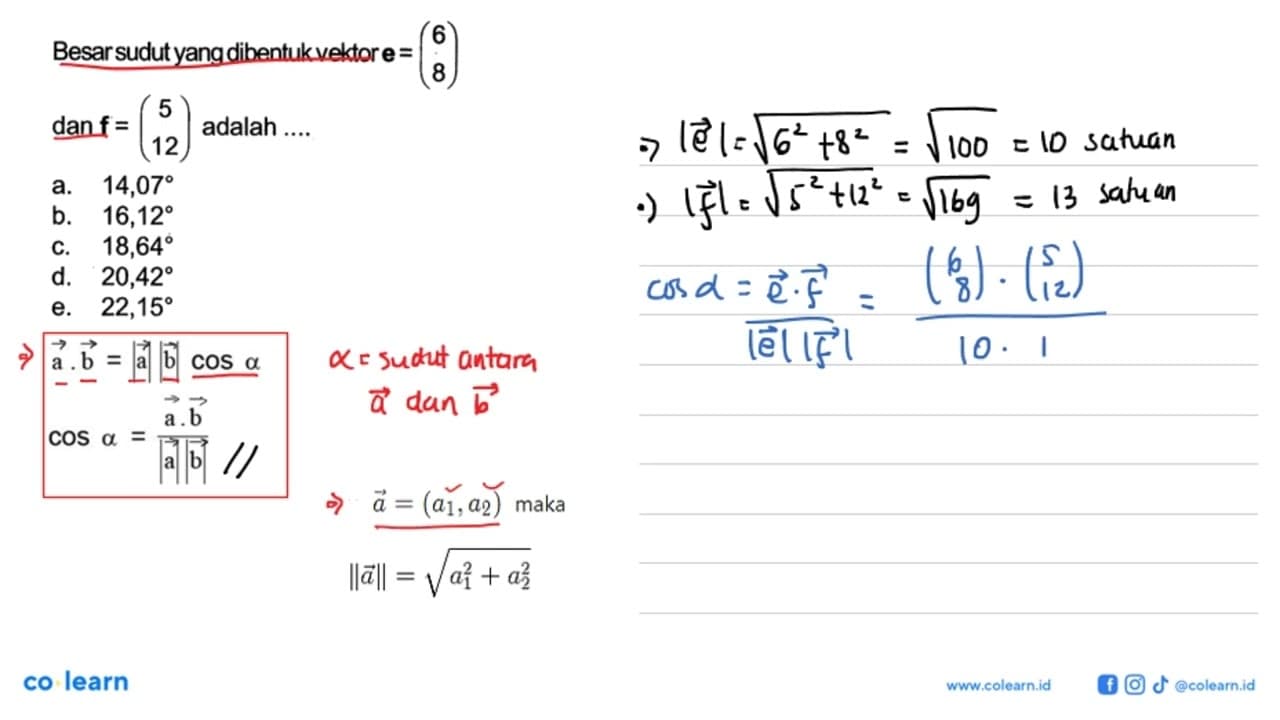 Besar sudut yang dibentuk vektor e = (6 8)
dan f = (5 12) adalah ....
a. 14,07°
b. 16,12°
c. 18,64°
d. 20,42°
e. 22,15°
⇒ a⃗ . b⃗ = |a⃗| |b⃗| cos α
cos α = a⃗ . b⃗ / |a⃗| |b⃗| //
α = sudut antara
a⃗ dan b⃗
⇒ a⃗ = (a₁, a₂) maka
||a⃗|| = √(a₁² + a₂²)
•) |e⃗| = √(6² + 8²) = √100 = 10 satuan
•) |f⃗| = √(5² + 12²) = √169 = 13 satuan
cos α = e⃗ . f⃗ / |e⃗| |f⃗| = (6 8) . (5 12) / 10 . 1
co learn
www.colearn.id
@colearn.id